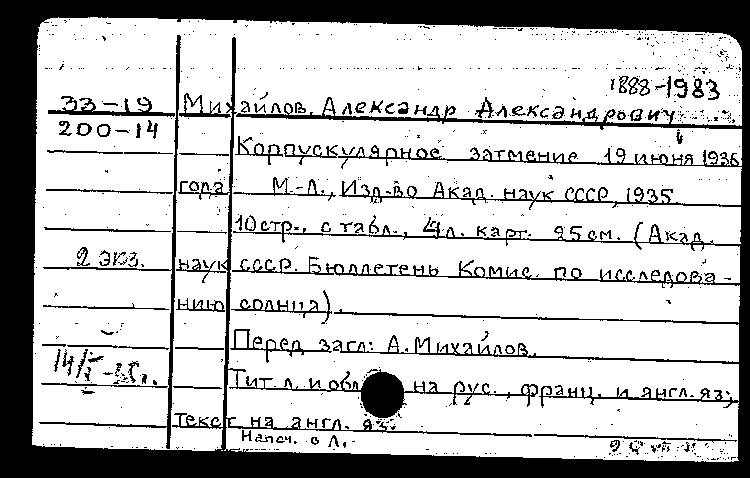 1888-1983
33-19 Михайлов, Александр Александрович
200-14
Корпускулярное затмение 19 июня 1936
года М.-Л., Изд-во Акад. наук СССР, 1935.
10 стр., с табл., 4 л. карт. 25 см. (Акад.
2 экз. наук СССР. Бюллетень Комис. по исследова-
нию солнца).
Перед загл: А. Михайлов.
Тит. л. и обл на рус., франц. и англ. яз;
текст на англ. яз.
Напеч. в Л.